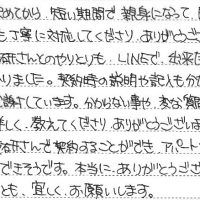 めてから、短い期間で親身になって
も丁寧に対応してくださり、ありがとうござ
さんとのやりとりも、LINEで、出来
りました。契約時の説明や記入も分か
謝しています。分からない事や、変な質
しく、教えてくださりありがとうございま
さんで契約することができ、アパート
できそうです。本当に、ありがとうござ
とも、宜しくお願いします。